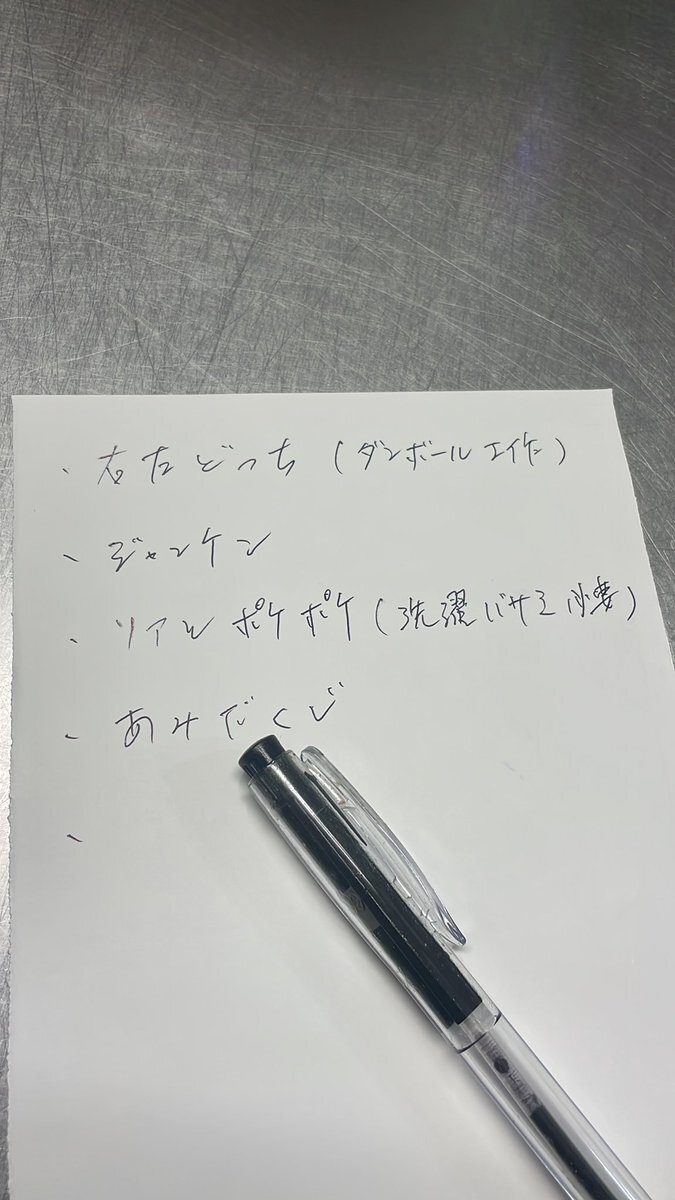 ・右左どっち（ダンボール工作）
・ジャンケン
・リアルポケポケ（洗濯バサミ必要）
・あみだくじ
・